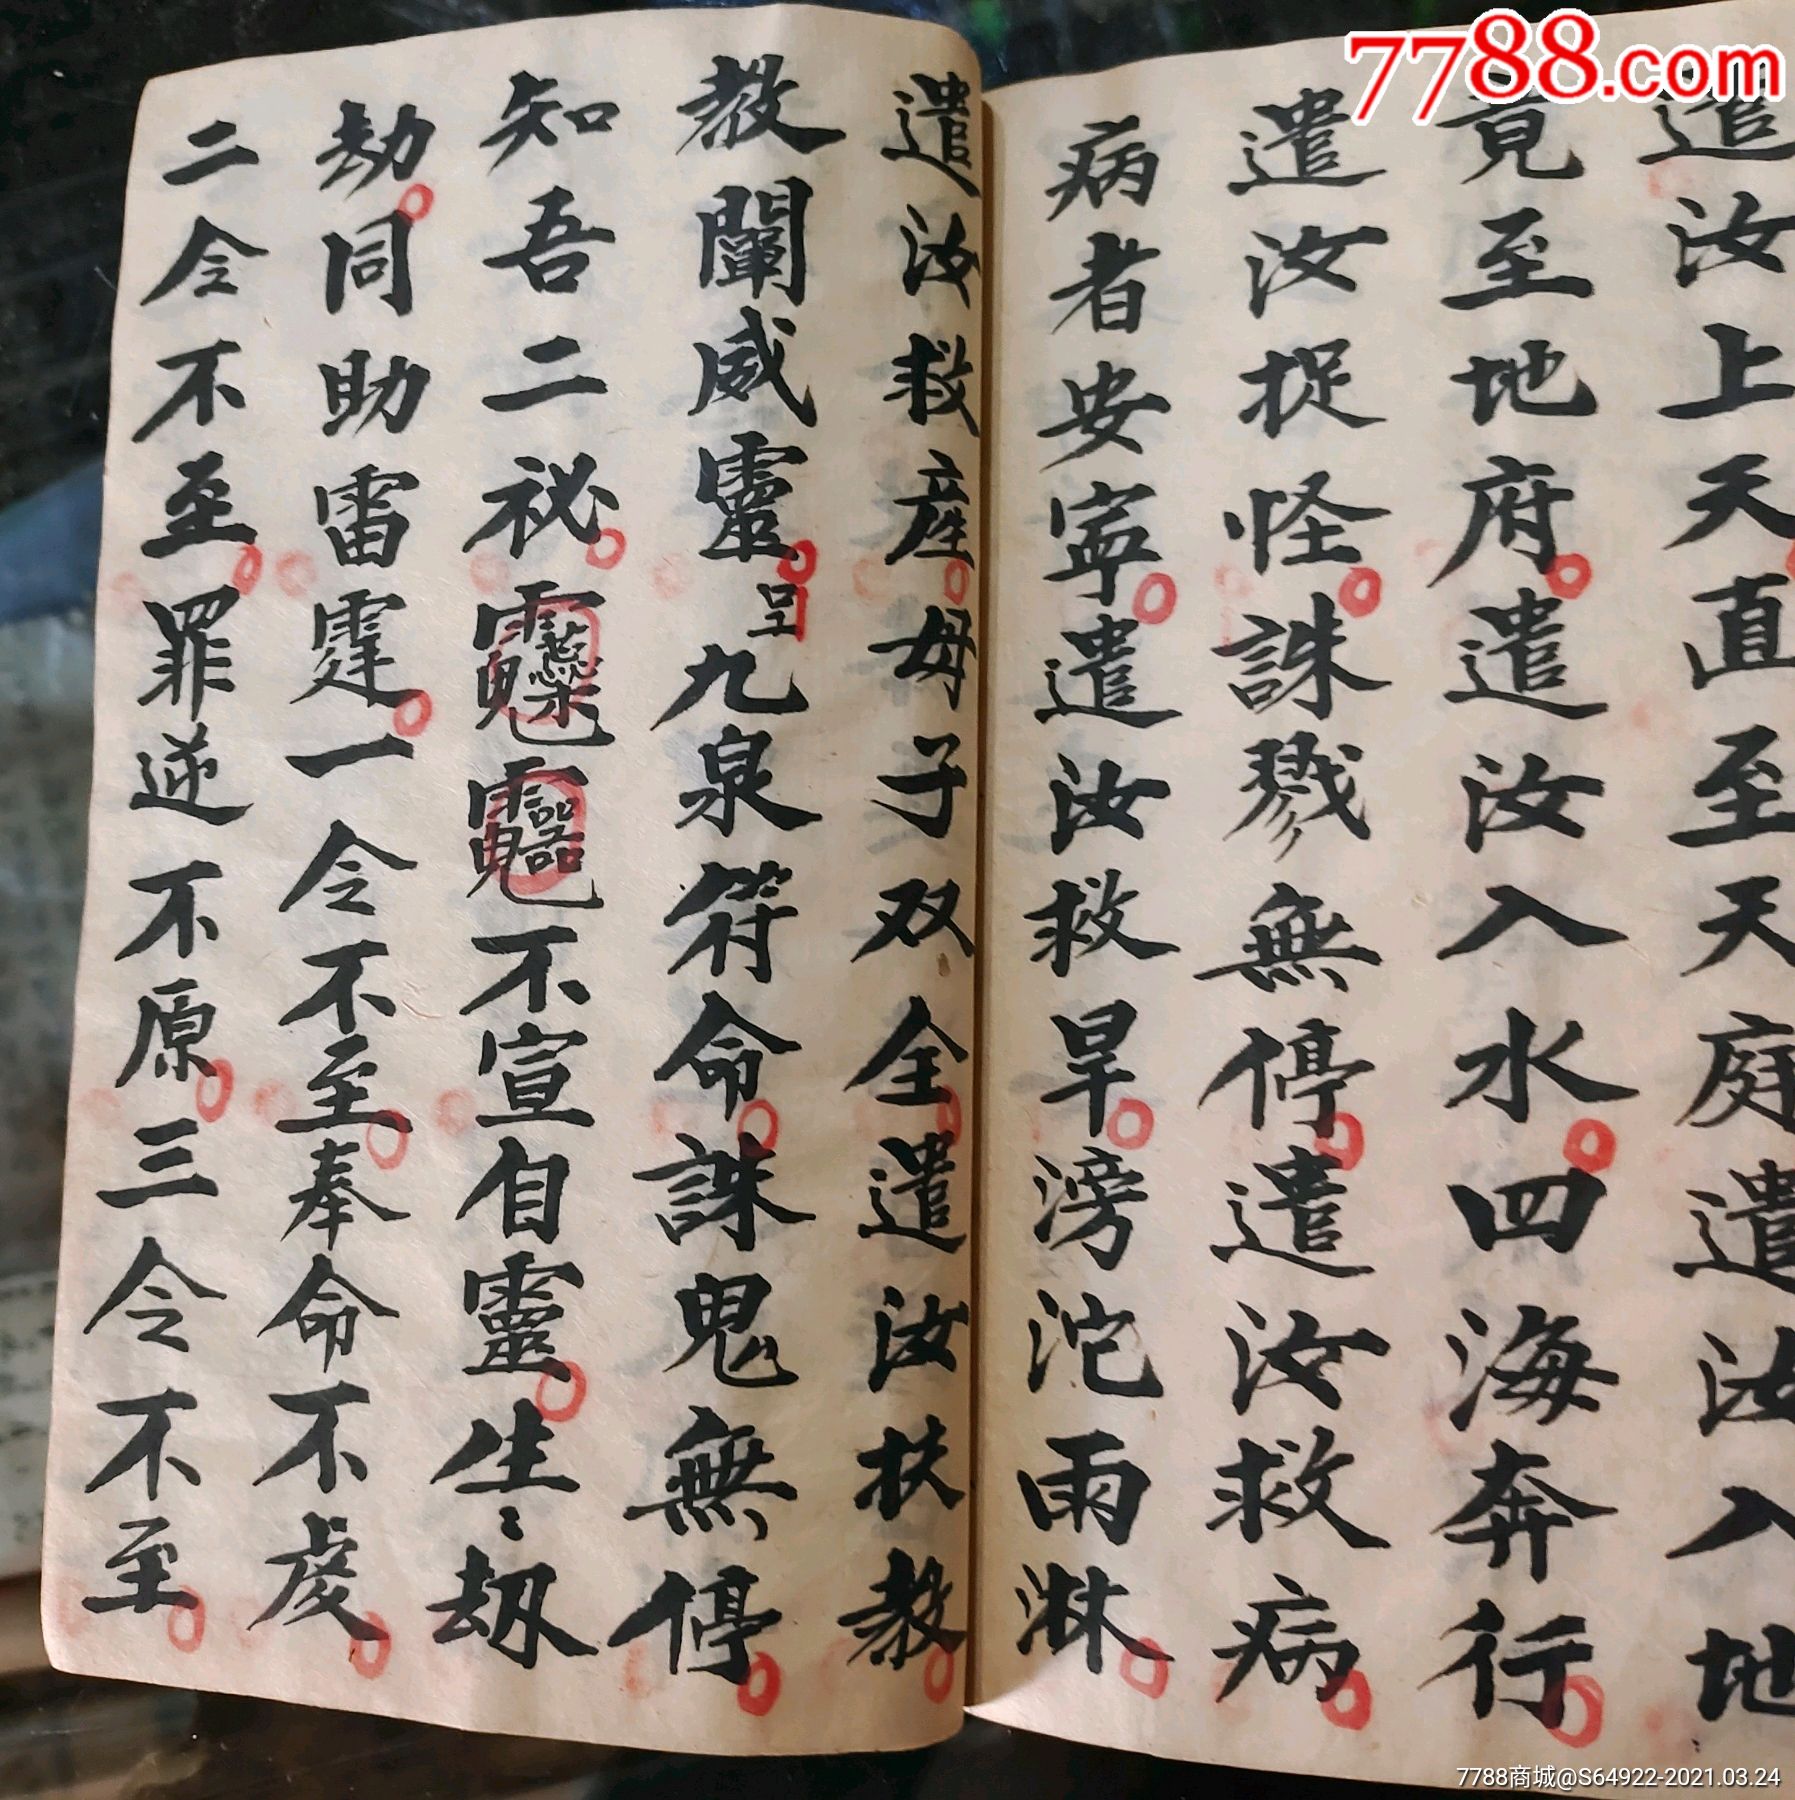 7788.com
遣汝上天直至天庭遣汝入地
竟至地府遣汝入水四海奔行
遣汝捉怪誅戮無停遣汝救病
病者安寧遣汝救旱滂沱雨淋
遣汝救産母子双全遣汝扶教
教闡威靈呈九泉符命誅鬼無停
知吾二祕不宣自靈生〻劫
劫同助雷霆一令不至奉命不虔
二令不至罪逆不原三令不至
7788商城@S64922-2021.03.24